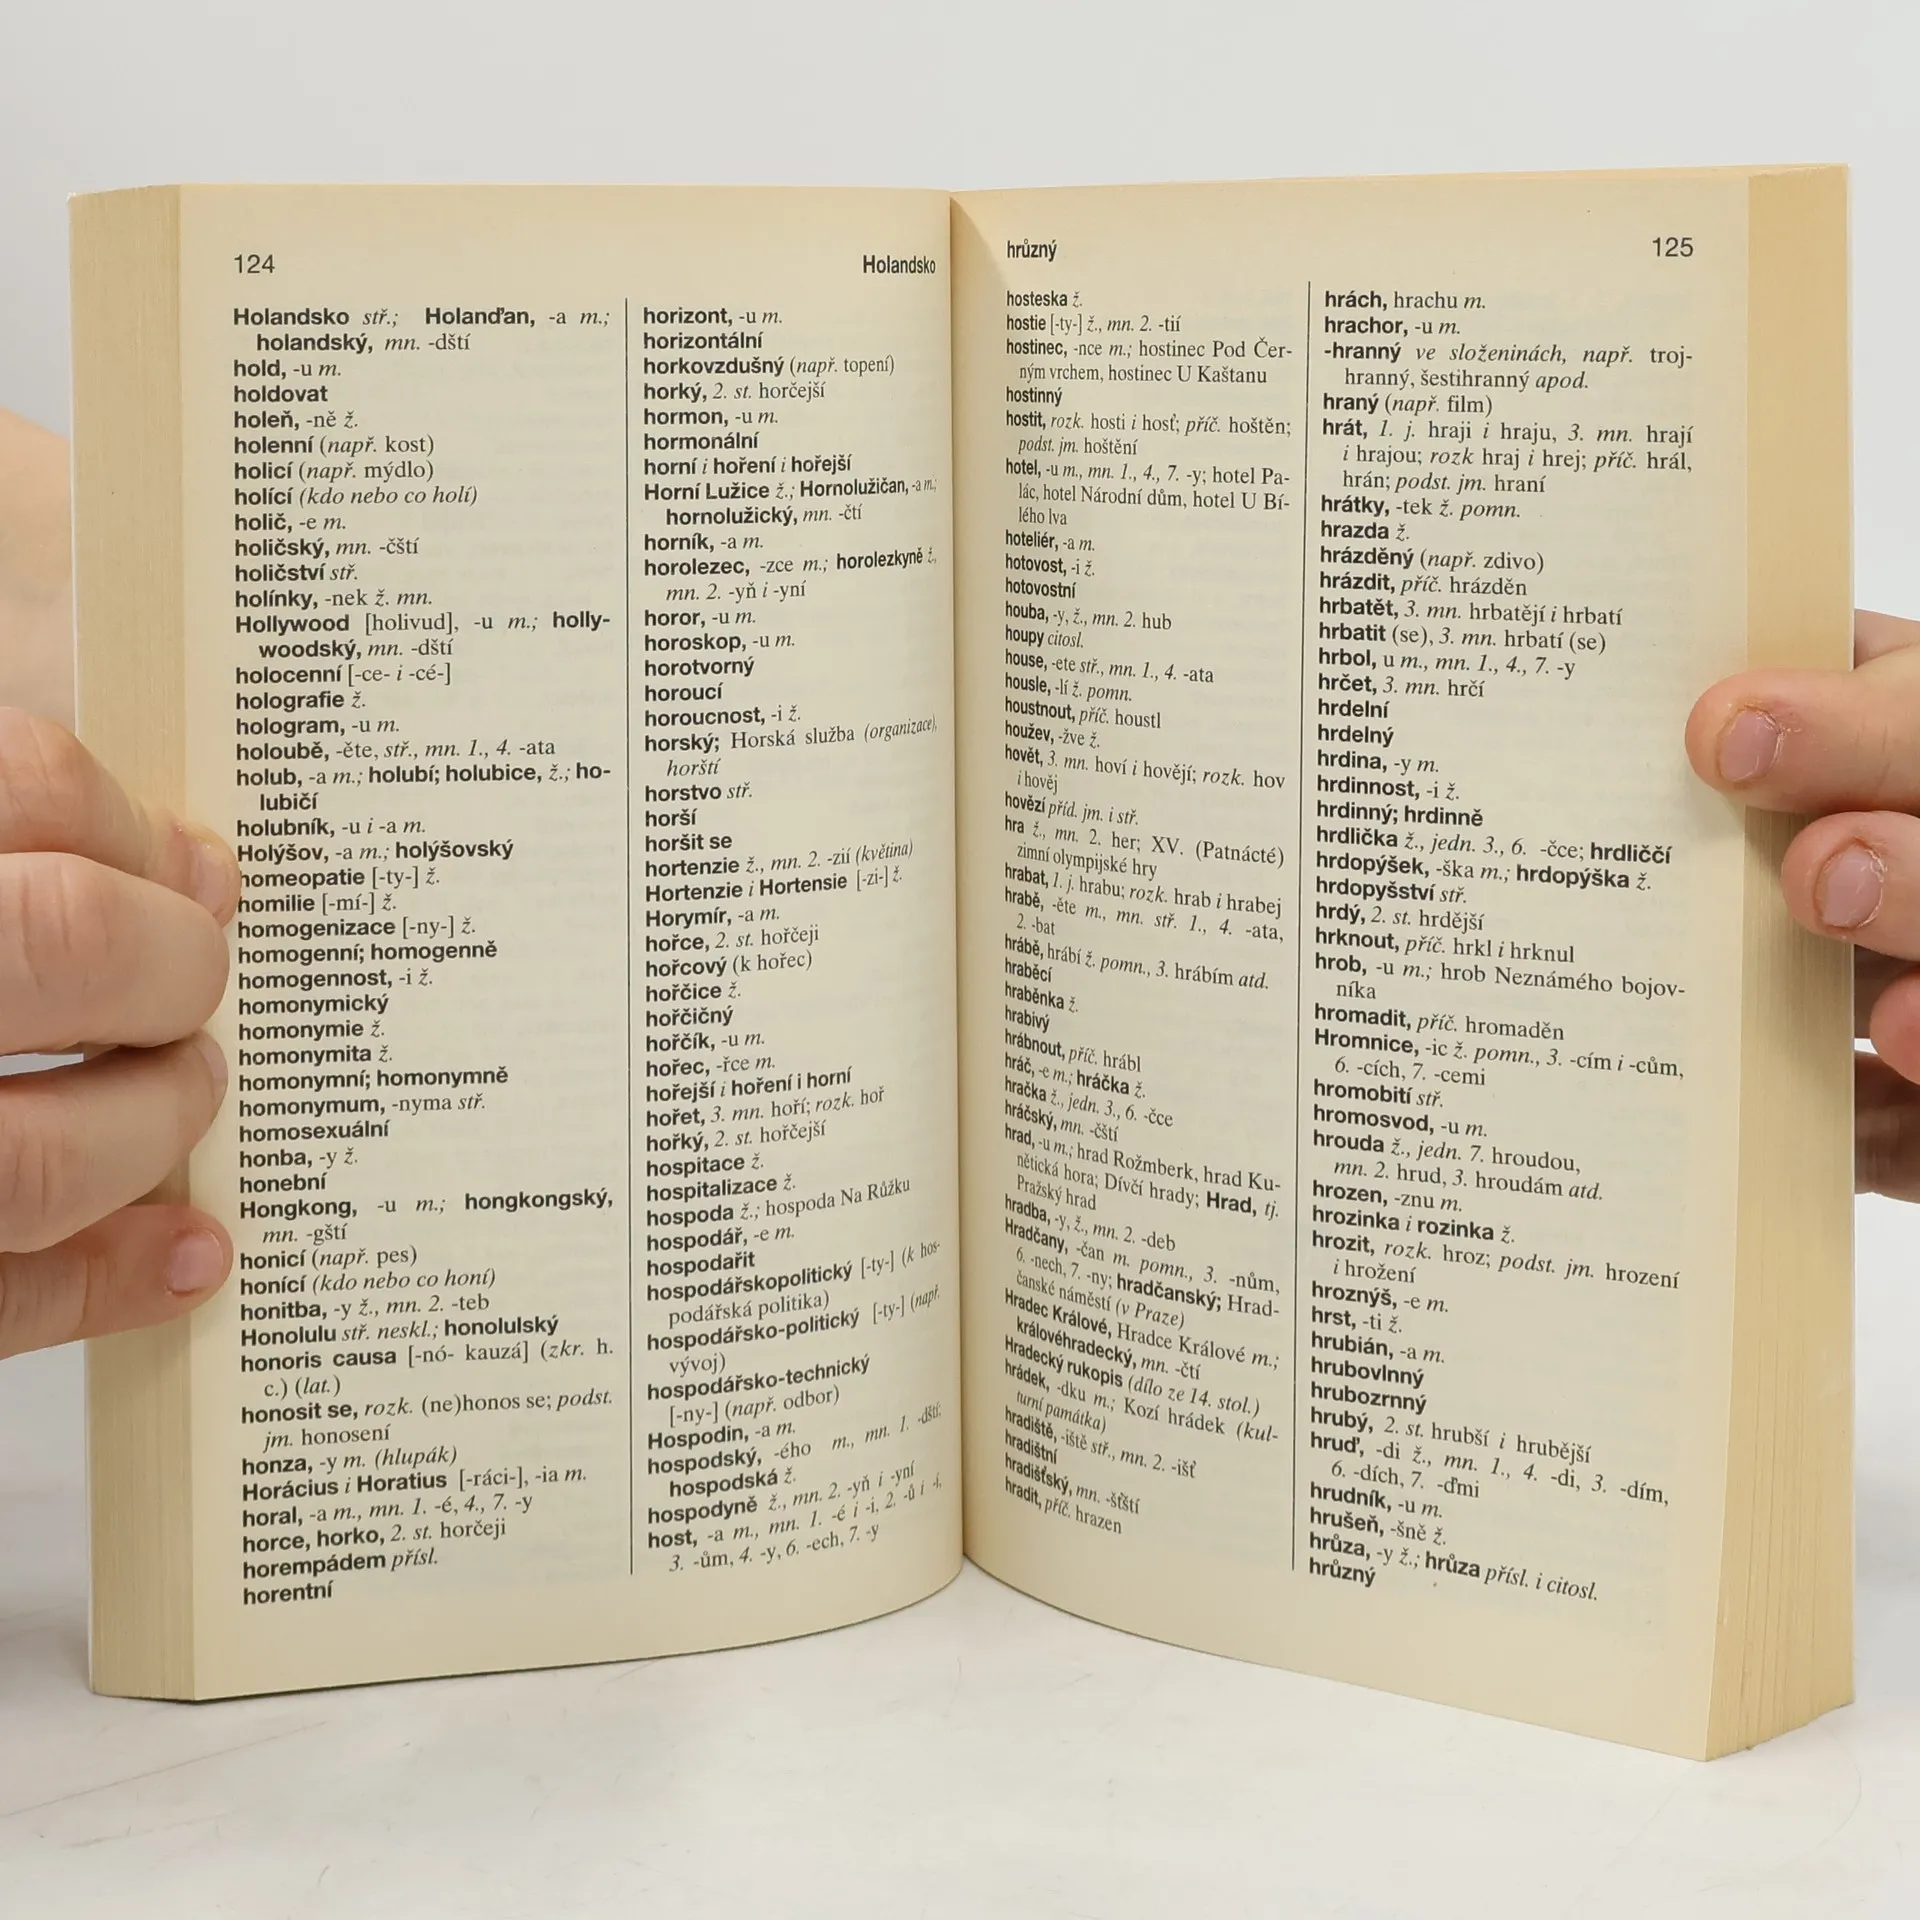 124
Holandsko
Holandsko stř.; Holanďan, -a m.;
holandský, mn. -dští
hold, -u m.
holdovat
holeň, -ně ž.
holenní (např. kost)
holicí (např. mýdlo)
holící (kdo nebo co holí)
holič, -e m.
holičský, mn. -čští
holičství stř.
holínky, -nek ž. mn.
Hollywood [holivud], -u m.; holly-
woodský, mn. -dští
holocenní [-ce- i -cé-]
holografie ž.
hologram, -u m.
holoubě, -ěte, stř., mn. 1., 4. -ata
holub, -a m.; holubí; holubice, ž.; ho-
lubičí
holubník, -u i -a m.
Holýšov, -a m.; holýšovský
homeopatie [-ty-] ž.
homilie [-mí-] ž.
homogenizace [-ny-] ž.
homogenní; homogenně
homogennost, -i ž.
homonymický
homonymie ž.
homonymita ž.
homonymní; homonymně
homonymum, -nyma stř.
homosexuální
honba, -y ž.
honební
Hongkong, -u m.; hongkongský,
mn. -gští
honicí (např. pes)
honící (kdo nebo co honí)
honitba, -y ž., mn. 2. -teb
Honolulu stř. neskl.; honolulský
honoris causa [-nó- kauzá] (zkr. h.
c.) (lat.)
honosit se, rozk. (ne)honos se; podst.
jm. honosení
honza, -y m. (hlupák)
Horácius i Horatius [-ráci-], -ia m.
horal, -a m., mn. 1. -é, 4., 7. -y
horce, horko, 2. st. horčeji
horempádem přísl.
horentní
horizont, -u m.
horizontální
horkovzdušný (např. topení)
horký, 2. st. horčejší
hormon, -u m.
hormonální
horní i hoření i hořejší
Horní Lužice ž.; Hornolužičan, -a m.;
hornolužický, mn. -čtí
horník, -a m.
horolezec, -zce m.; horolezkyně ž.,
mn. 2. -yň i -yní
horor, -u m.
horoskop, -u m.
horotvorný
horoucí
horoucnost, -i ž.
horský; Horská služba (organizace),
horští
horstvo stř.
horší
horšit se
hortenzie ž., mn. 2. -zií (květina)
Hortenzie i Hortensie [-zi-] ž.
Horymír, -a m.
hořce, 2. st. hořčeji
hořcový (k hořec)
hořčice ž.
hořčičný
hořčík, -u m.
hořec, -řce m.
hořejší i hoření i horní
hořet, 3. mn. hoří; rozk. hoř
hořký, 2. st. hořčejší
hospitace ž.
hospitalizace ž.
hospoda ž.; hospoda Na Růžku
hospodář, -e m.
hospodařit
hospodářskopolitický [-ty-] (k hos-
podářská politika)
hospodářsko-politický [-ty-] (např.
vývoj)
hospodářsko-technický
[-ny-] (např. odbor)
Hospodin, -a m.
hospodský, -ého m., mn. 1. -dští;
hospodská ž.
hospodyně ž., mn. 2. -yň i -yní
host, -a m., mn. 1. -é i -i, 2. -ů i -í,
3. -ům, 4. -y, 6. -ech, 7. -y
hrůzný
125
hosteska ž.
hostie [-ty-] ž., mn. 2. -tií
hostinec, -nce m.; hostinec Pod Čer-
ným vrchem, hostinec U Kaštanu
hostinný
hostit, rozk. hosti i hosť; příč. hoštěn;
podst. jm. hoštění
hotel, -u m., mn. 1., 4., 7. -y; hotel Pa-
lác, hotel Národní dům, hotel U Bí-
lého lva
hoteliér, -a m.
hotovost, -i ž.
hotovostní
houba, -y, ž., mn. 2. hub
houpy citosl.
house, -ete stř., mn. 1., 4. -ata
housle, -lí ž. pomn.
houstnout, příč. houstl
houžev, -žve ž.
hovět, 3. mn. hoví i hovějí; rozk. hov
i hověj
hovězí příd. jm. i stř.
hra ž., mn. 2. her; XV. (Patnácté)
zimní olympijské hry
hrabat, 1. j. hrabu; rozk. hrab i hrabej
hrabě, -ěte m., mn. stř. 1., 4. -ata,
2. -bat
hrábě, hrábí ž. pomn., 3. hrábím atd.
hraběcí
hraběnka ž.
hrabivý
hrábnout, příč. hrábl
hráč, -e m.; hráčka ž.
hračka ž., jedn. 3., 6. -čce
hráčský, mn. -čští
hrad, -u m.; hrad Rožmberk, hrad Ku-
nětická hora; Dívčí hrady; Hrad, tj.
Pražský hrad
hradba, -y, ž., mn. 2. -deb
Hradčany, -čan m. pomn., 3. -nům,
6. -nech, 7. -ny; hradčanský; Hrad-
čanské náměstí (v Praze)
Hradec Králové, Hradce Králové m.;
královéhradecký, mn. -čtí
Hradecký rukopis (dílo ze 14. stol.)
hrádek, -dku m.; Kozí hrádek (kul-
turní památka)
hradiště, -iště stř., mn. 2. -išť
hradištní
hradišťský, mn. -šťští
hradit, příč. hrazen
hrách, hrachu m.
hrachor, -u m.
-hranný ve složeninách, např. troj-
hranný, šestihranný apod.
hraný (např. film)
hrát, 1. j. hraji i hraju, 3. mn. hrají
i hrajou; rozk hraj i hrej; příč. hrál,
hrán; podst. jm. hraní
hrátky, -tek ž. pomn.
hrazda ž.
hrázděný (např. zdivo)
hrázdit, příč. hrázděn
hrbatět, 3. mn. hrbatějí i hrbatí
hrbatit (se), 3. mn. hrbatí (se)
hrbol, u m., mn. 1., 4., 7. -y
hrčet, 3. mn. hrčí
hrdelní
hrdelný
hrdina, -y m.
hrdinnost, -i ž.
hrdinný; hrdinně
hrdlička ž., jedn. 3., 6. -čce; hrdliččí
hrdopýšek, -ška m.; hrdopýška ž.
hrdopyšství stř.
hrdý, 2. st. hrdější
hrknout, příč. hrkl i hrknul
hrob, -u m.; hrob Neznámého bojov-
níka
hromadit, příč. hromaděn
Hromnice, -ic ž. pomn., 3. -cím i -cům,
6. -cích, 7. -cemi
hromobití stř.
hromosvod, -u m.
hrouda ž., jedn. 7. hroudou,
mn. 2. hrud, 3. hroudám atd.
hrozen, -znu m.
hrozinka i rozinka ž.
hrozit, rozk. hroz; podst. jm. hrození
i hrožení
hroznýš, -e m.
hrst, -ti ž.
hrubián, -a m.
hrubovlnný
hrubozrnný
hrubý, 2. st. hrubší i hrubější
hruď, -di ž., mn. 1., 4. -di, 3. -dím,
6. -dích, 7. -ďmi
hrudník, -u m.
hrušeň, -šně ž.
hrůza, -y ž.; hrůza přísl. i citosl.
hrůzný